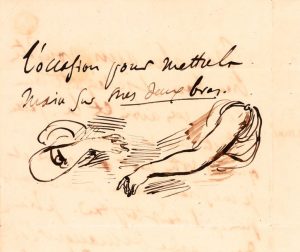 l'occasion pour mettre la
main sur mes deux bras.